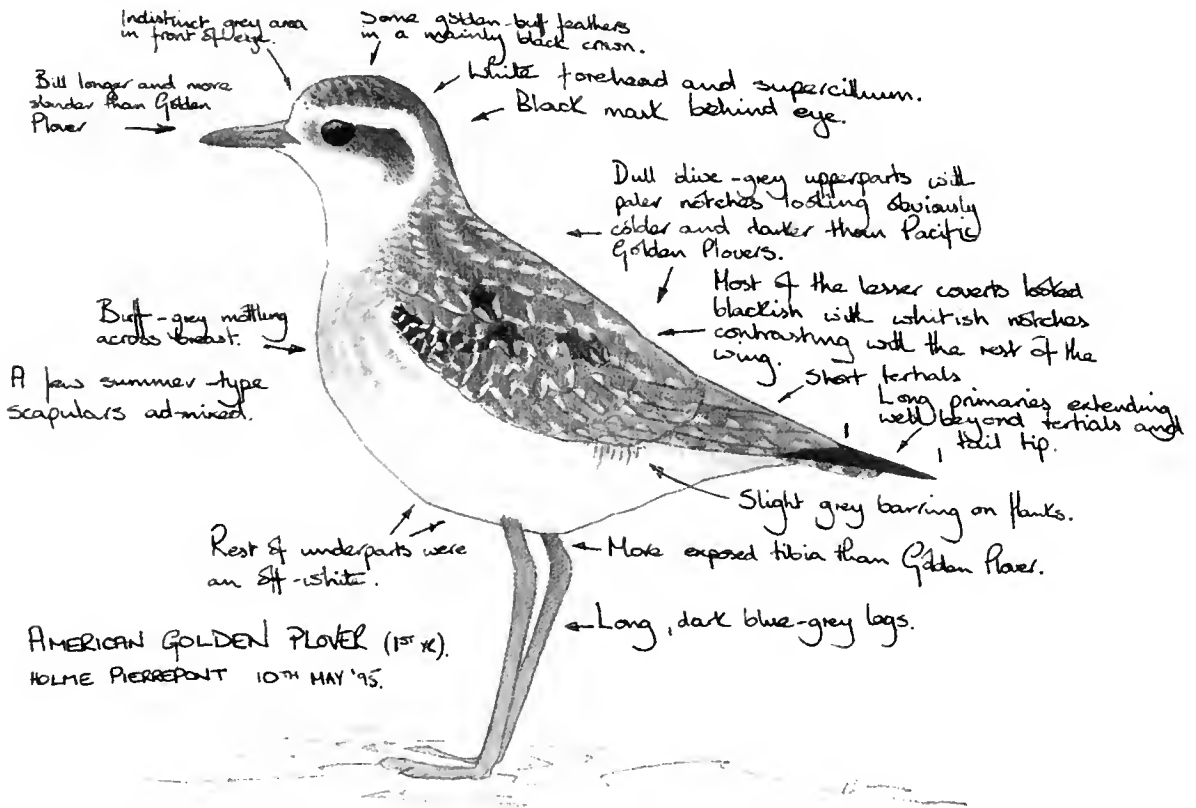 Indistinct grey area
in front of eye.
Some golden-buff feathers
in a mainly black crown.
Bill longer and more
slender than Golden
Plover
White forehead and supercilium.
Black mark behind eye.
Dull olive-grey upperparts with
paler notches looking obviously
colder and darker than Pacific
Golden Plovers.
Most of the lesser coverts looked
blackish with whitish notches
contrasting with the rest of the
wing.
Buff-grey mottling
across breast.
A few summer-type
scapulars ad-mixed.
Short tertials
Long primaries extending
well beyond tertials and
tail tip.
Slight grey barring on flanks.
Rest of underparts were
an off-white.
More exposed tibia than Golden Plover.
Long, dark blue-grey legs.
AMERICAN GOLDEN PLOVER (1ST YR).
HOLME PIERREPONT 10TH MAY '95.